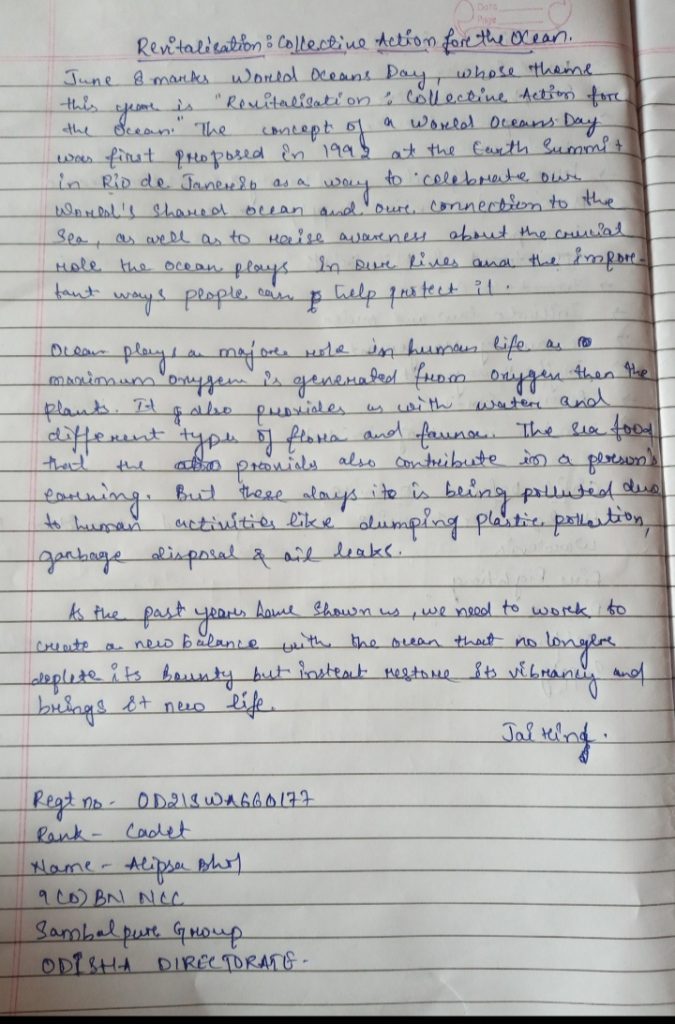 Date
Page
Revitalisation : Collective Action for the Ocean.
June 8 marks World Oceans Day, whose theme
this year is "Revitalisation : Collective Action for
the Ocean." The concept of a World Oceans Day
was first proposed in 1992 at the Earth Summit
in Rio de Janeiro as a way to celebrate our
World's shared ocean and our connection to the
Sea, as well as to raise awareness about the crucial
role the ocean plays in our lives and the impor-
tant ways people can help protect it.
Ocean plays a major role in human life as
maximum oxygen is generated from oxygen then the
plants. It also provides us with water and
different types of flora and fauna. The sea food
that the provides also contribute in a person's
earning. But these days its is being polluted due
to human activities like dumping plastic pollution,
garbage disposal & oil leaks.
As the past years have shown us, we need to work to
create a new balance with the ocean that no longer
deplete its bounty but insteat restore its vibrancy and
brings it new life.
Jai Hind.
Regt no - OD21SWA660177
Rank - Cadet
Name - Alipsa
9 (O) BN NCC
Sambalpur Group
ODISHA DIRECTORATE.